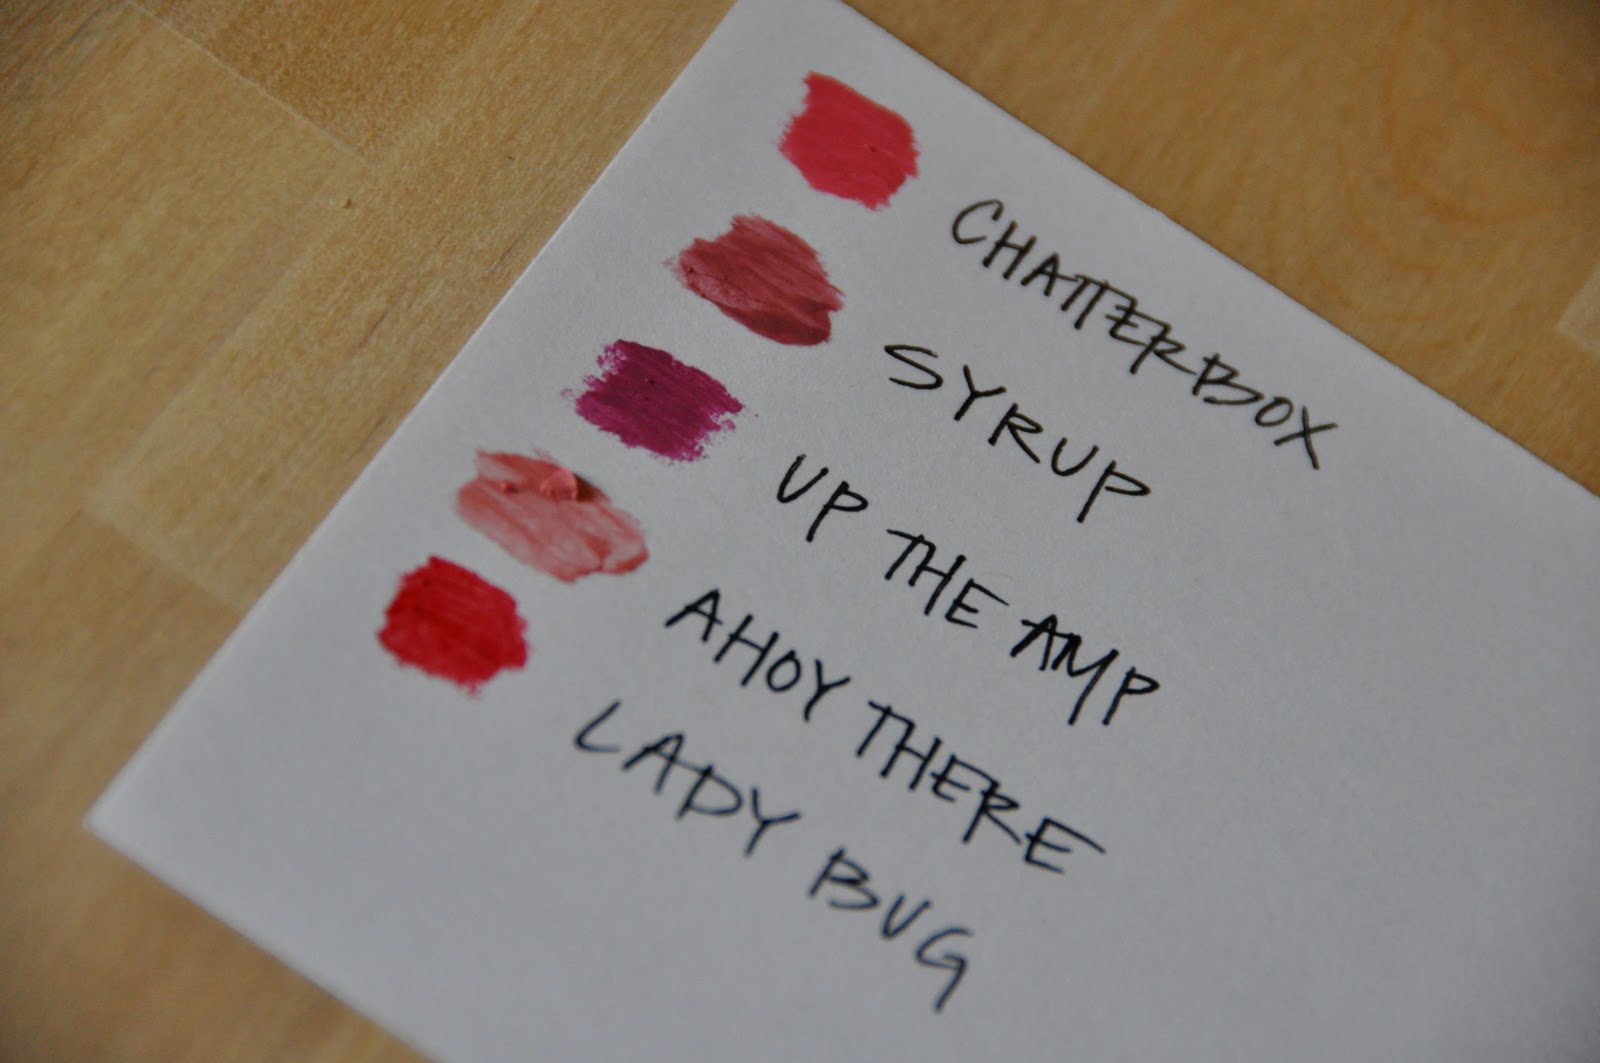 CHATTERBOX
SYRUP
UP THE AMP
AHOY THERE
LADY BUG